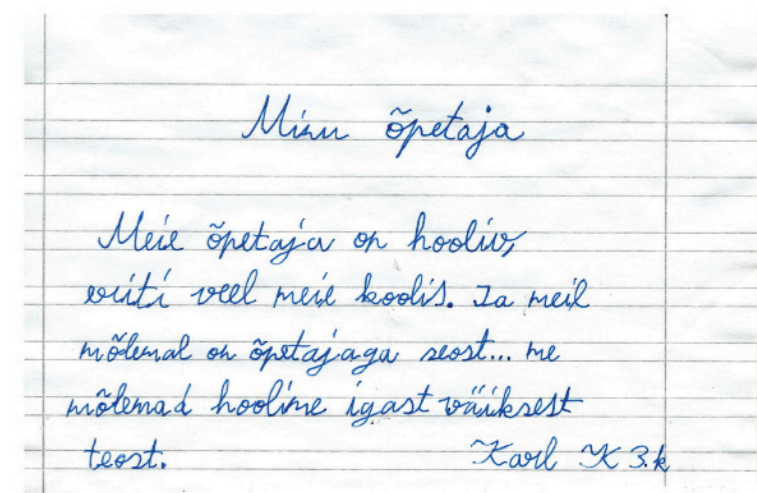 Minu õpetaja
Meie õpetaja on hooliv,
veel meie koolis. Ja meil
mõlemal on õpetajaga seost... me
mõlemad hoolime igast väiksest
teost. Karl K 3.k